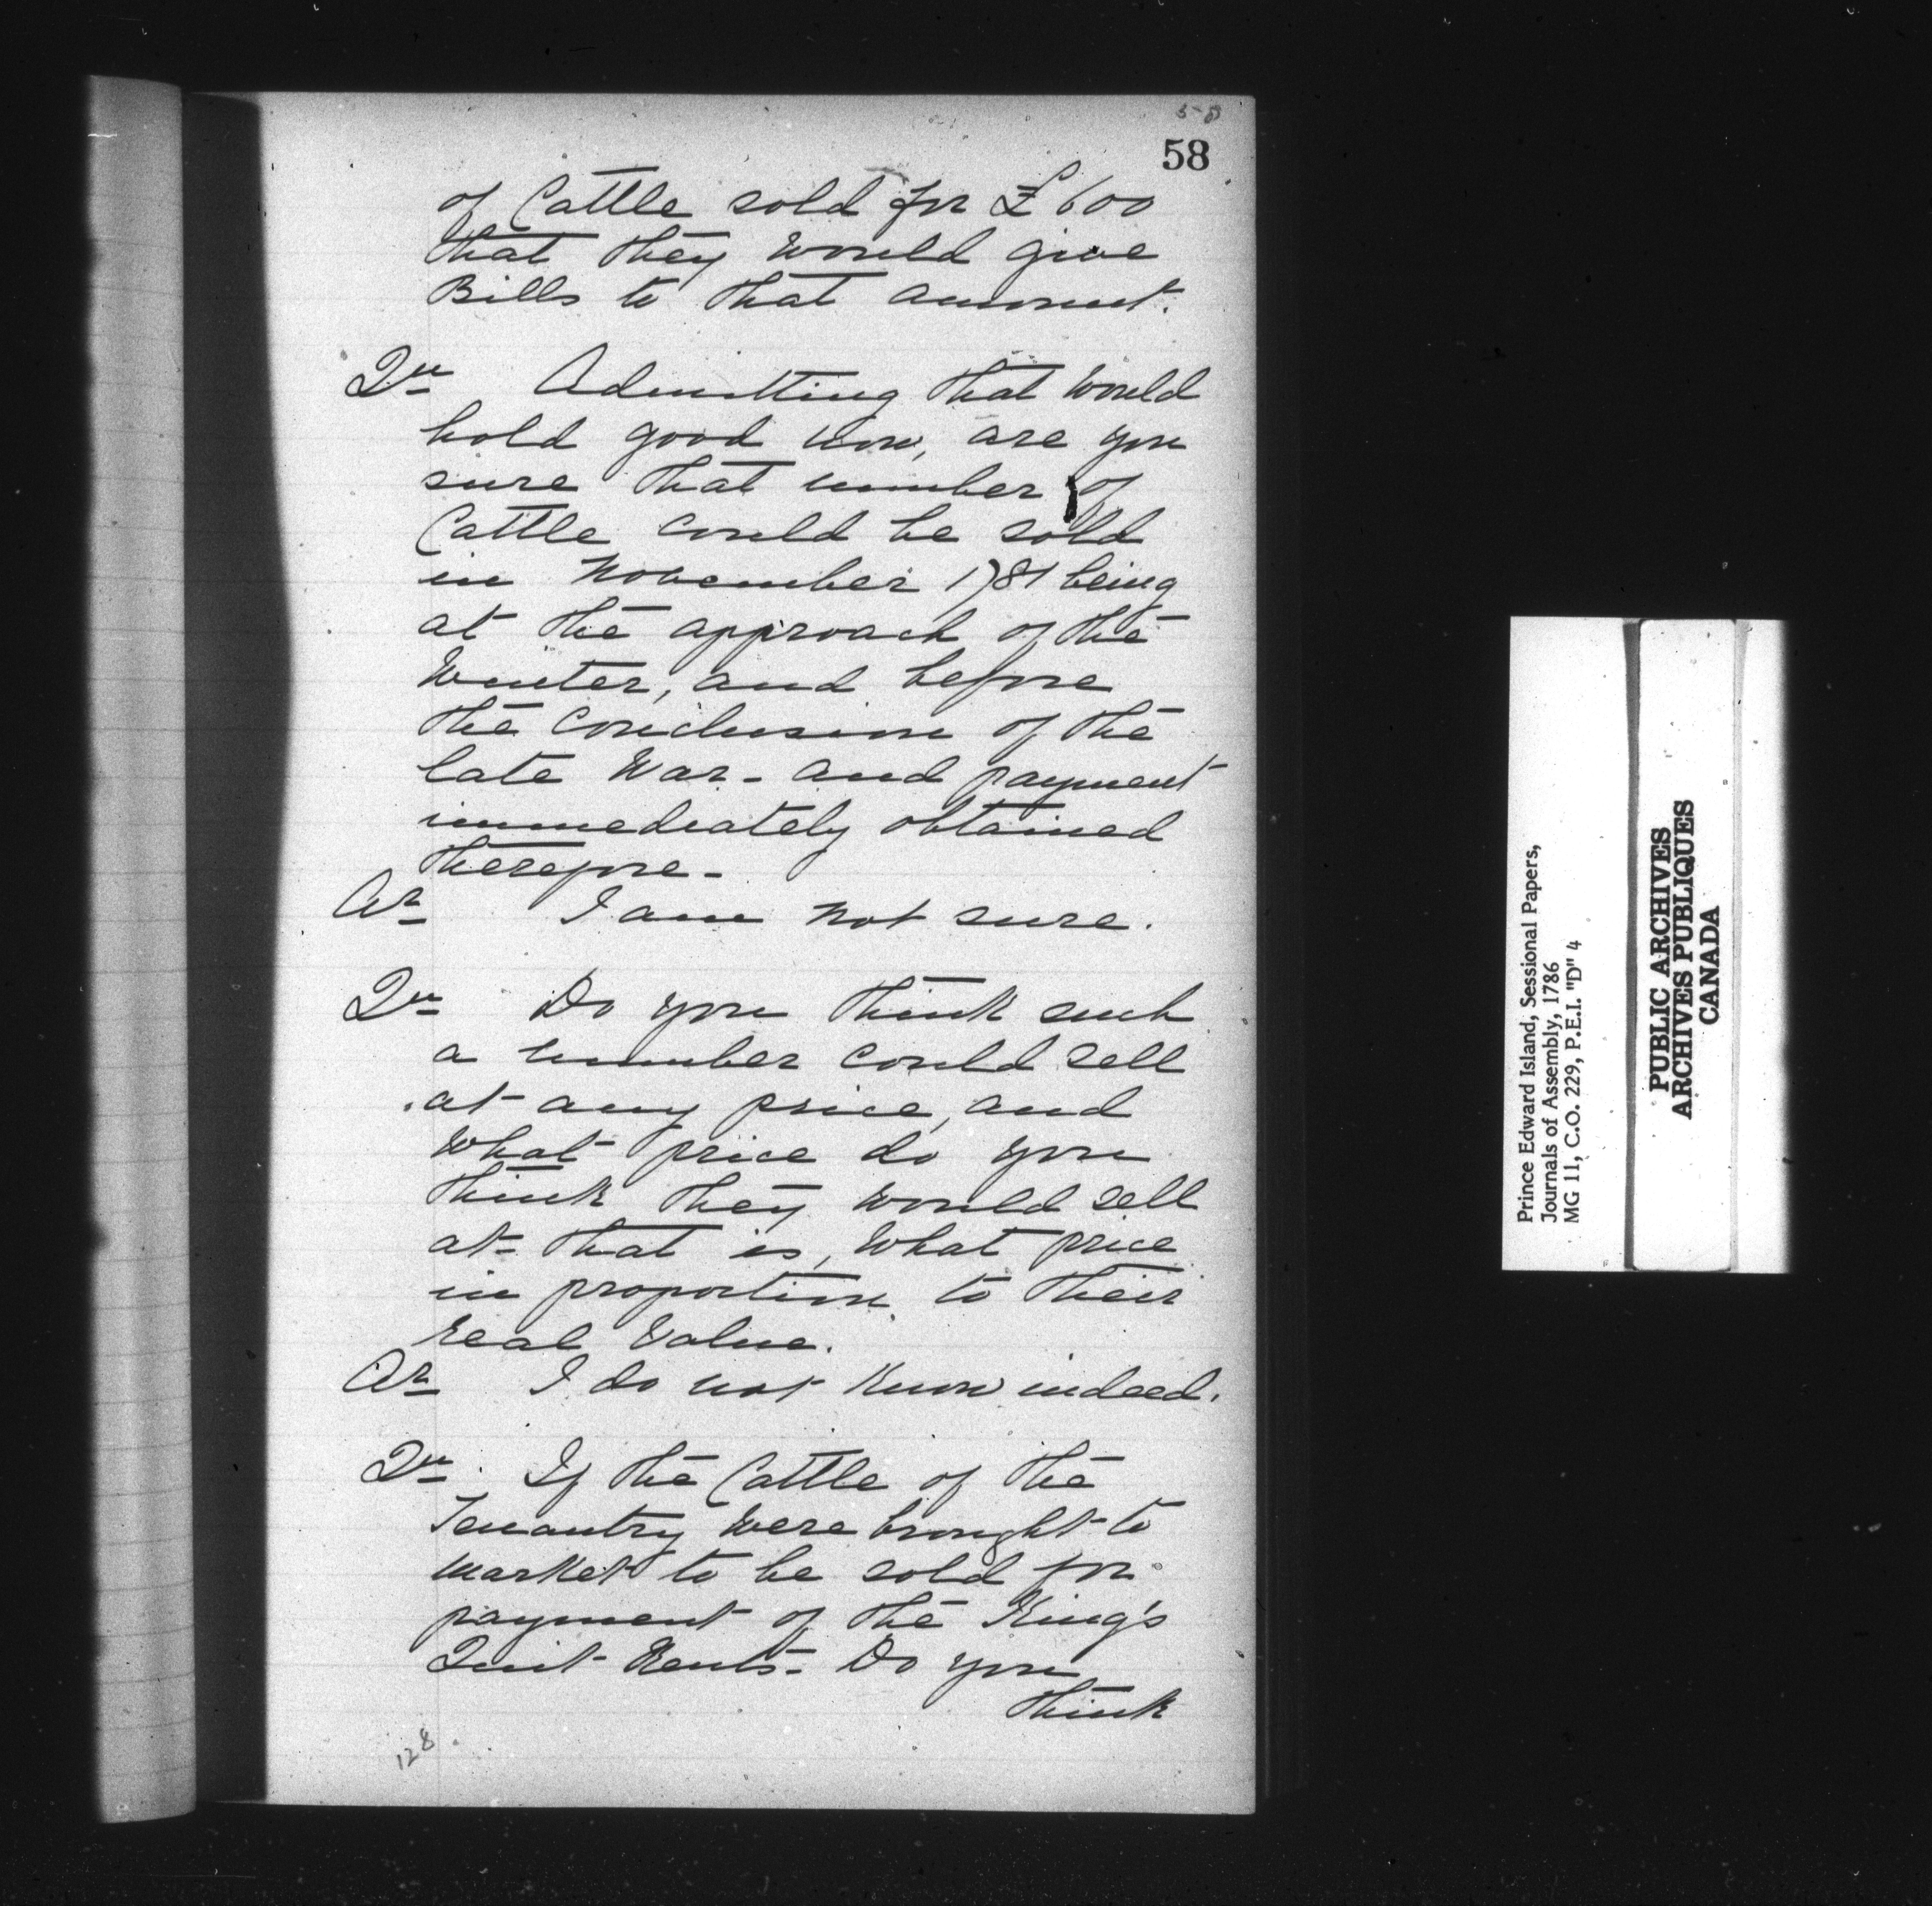 58
58
of Cattle sold for £600
that they would give
Bills to that amount.
Qu Admitting that would
hold good now, are you
sure that number of
Cattle could be sold
in November 1781 being
at the approach of the
Winter, and before
the conclusion of the
late War - and payment
immediately obtained
therefore -
Ar I am not sure.
Qu Do you think such
a number could sell
at any price, and
what price do you
think they would sell
at - that is, what price
in proportion to their
real value.
Ar I do not know indeed.
Qu If the Cattle of the
Tenantry were brought to
market to be sold for
payment of the King's
Quit Rents - Do you
think
128
Prince Edward Island, Sessional Papers,
Journals of Assembly, 1786
MG 11, C.O. 229, P.E.I. "D" 4
PUBLIC ARCHIVES
ARCHIVES PUBLIQUES
CANADA